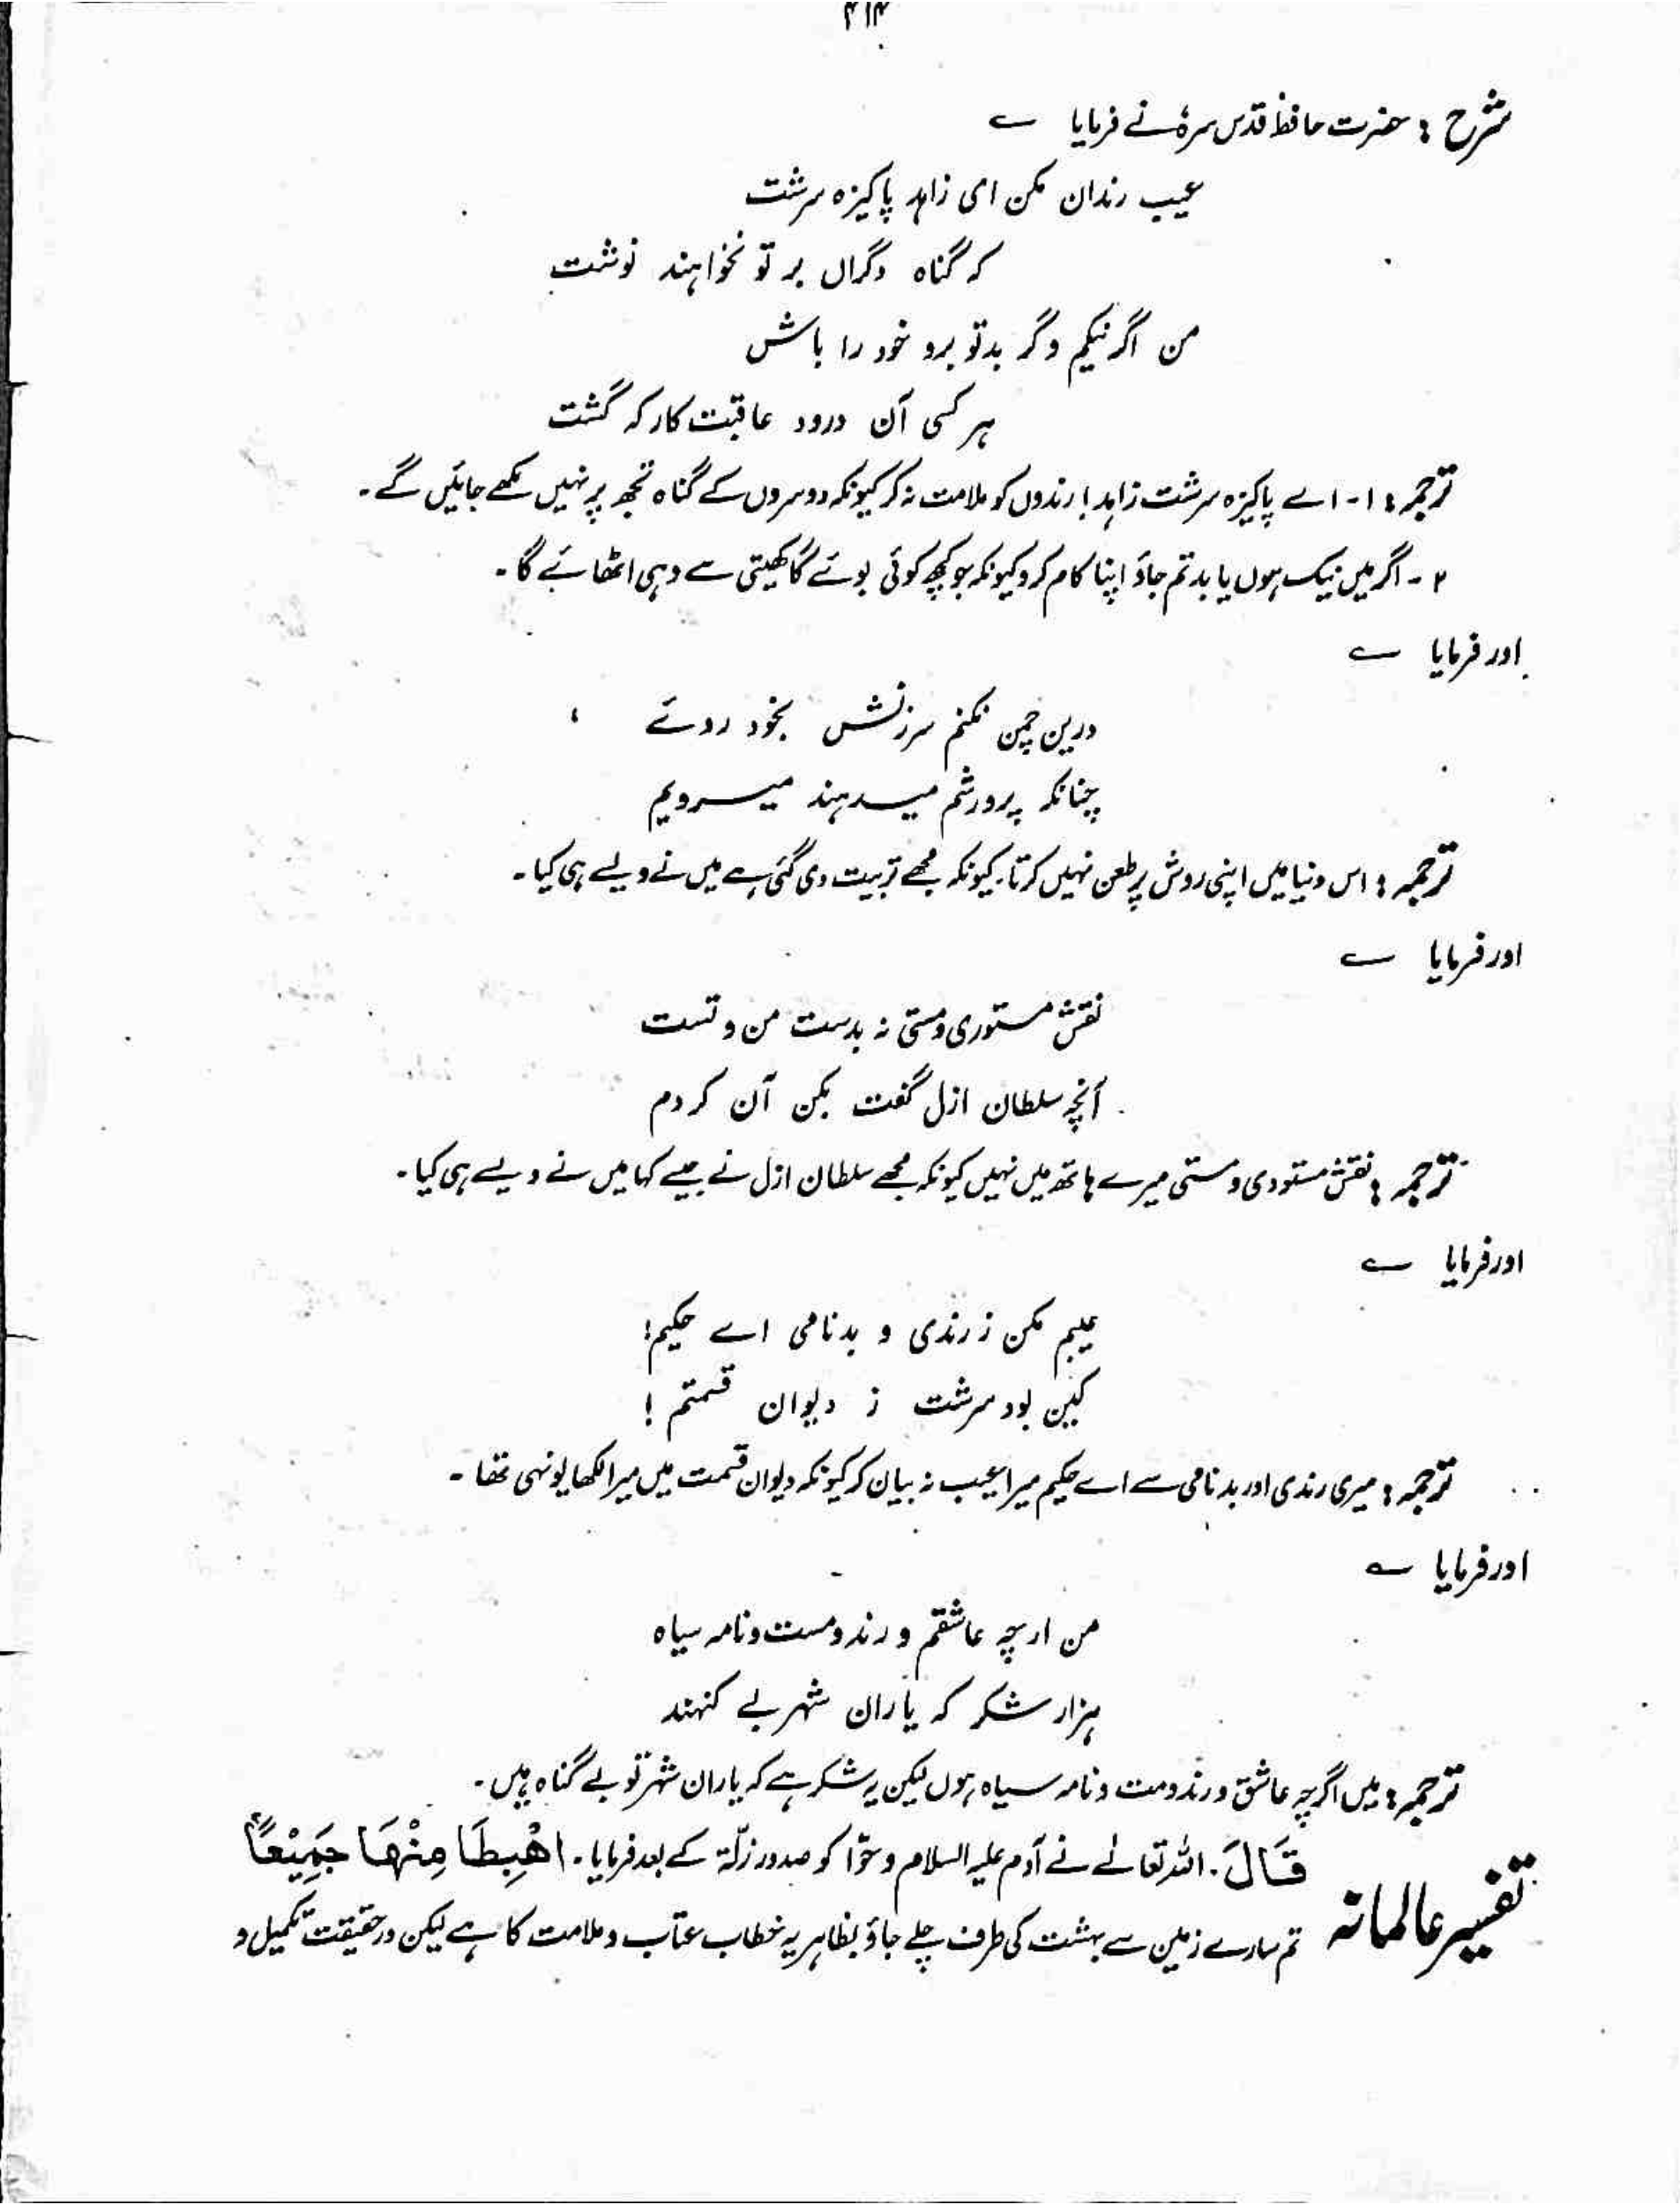 ۴۱۴
شرح : حضرت حافظ قدس سرہٗ نے فرمایا ؎
عیب رندان مکن ای زاہد پاکیزہ سرشت
کہ گناہ دگراں بر تو نخواہند نوشت
من اگر نیکم وگر بد تو برو خود را باش
ہر کسی آن درود عاقبت کار کہ گشت
ترجمہ : ۱- اے پاکیزہ سرشت زاہد! رندوں کو ملامت نہ کر کیونکہ دوسروں کے گناہ تجھ پر نہیں لکھے جائیں گے۔
۲- اگر میں نیک ہوں یا بد تم جاؤ اپنا کام کرو کیونکہ جو کچھ کوئی بوئے گا کھیتی سے وہی اٹھائے گا۔
اور فرمایا ؎
درین چمن نکنم سرزنش بخود روئے ،
چنانکہ پرورشم میدہند میرویم
ترجمہ : اس دنیا میں اپنی روش پر طعن نہیں کرتا۔ کیونکہ مجھے تربیت دی گئی ہے میں نے ویسے ہی کیا۔
اور فرمایا ؎
نقش مستوری و مستی نہ بدست من و تست
آنچہ سلطان ازل گفت بکن آن کردم
ترجمہ : نقش مستوری و مستی میرے ہاتھ میں نہیں کیونکہ مجھے سلطان ازل نے جیسے کہا میں نے ویسے ہی کیا۔
اور فرمایا ؎
عیبم مکن ز رندی و بدنامی اے حکیم!
کین بود سرشت ز دیوان قسمتم !
ترجمہ : میری رندی اور بدنامی سے اے حکیم میرا عیب نہ بیان کر کیونکہ دیوان قسمت میں میرا لکھا یونہی تھا۔
اور فرمایا ؎
من ارچہ عاشقم و رند و مست و نامہ سیاہ
ہزار شکر کہ یاران شہر بے گنہند
ترجمہ : میں اگرچہ عاشق و رند و مست و نامہ سیاہ ہوں لیکن یہ شکر ہے کہ یاران شہر تو بے گناہ ہیں۔
تفسیر عالمانہ قَالَ۔ اللہ تعالےٰ نے آدم علیہ السلام و حوّا کو صدور زلّۃ کے بعد فرمایا۔ اهْبِطَا مِنْهَا جَمِيْعًا
تم سارے زمین سے بہشت کی طرف چلے جاؤ بظاہر یہ خطاب عتاب و ملامت کا ہے لیکن درحقیقت تکمیل و